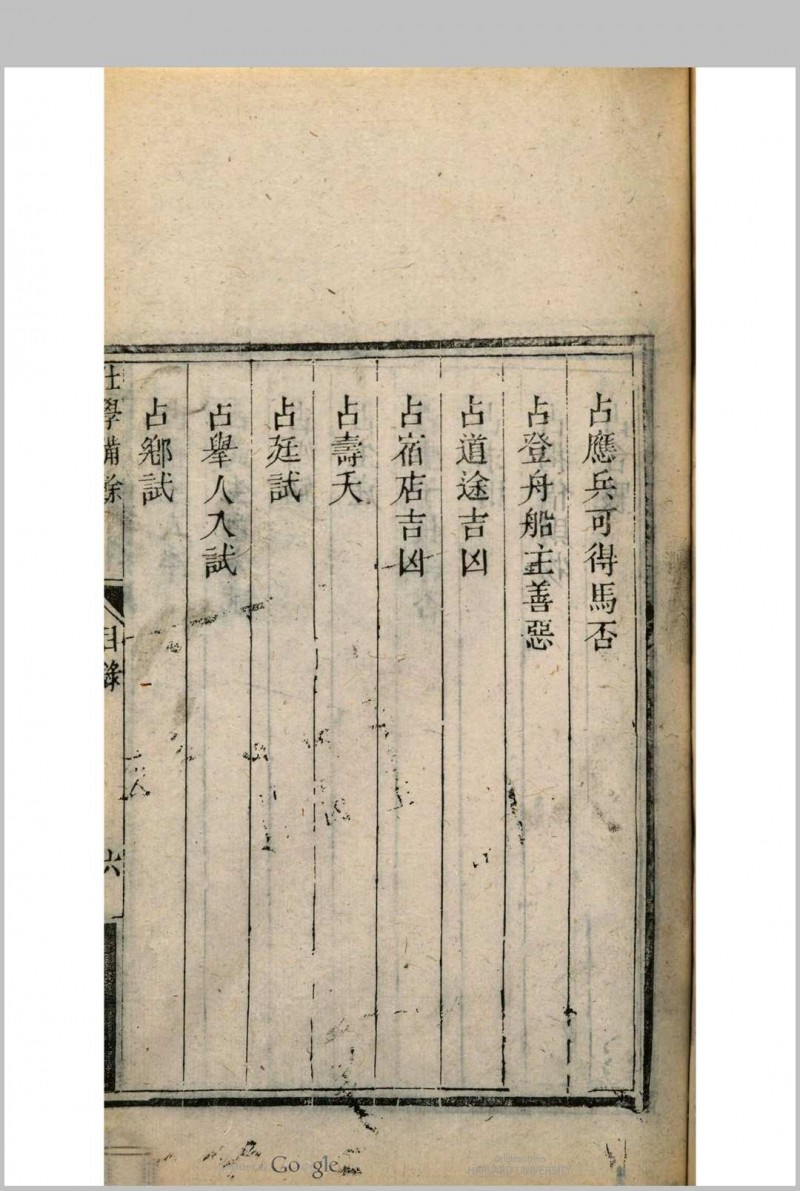 占應兵可得馬否
占登舟船主善惡
占道途吉凶
占宿店吉凶
占壽夭
占廷試
占舉人入試
占鄉試
仕學備餘
目錄
六
Google
HARVARD UNIVERSITY